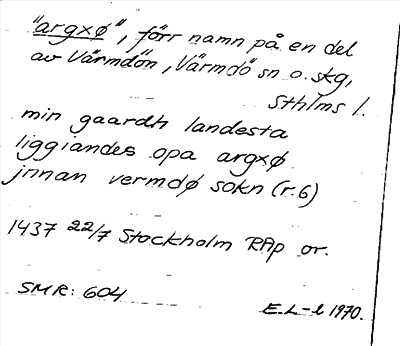 "argxø", förr namn på en del
av Värmdön, Värmdö sn o. skg,
Sthlms l.
min gaardh landesta
liggiandes opa argxø
jnnan vermdø sokn (r.6)
1437 22/7 Stockholm RAp or.
SMR: 604
E.L-l 1970.